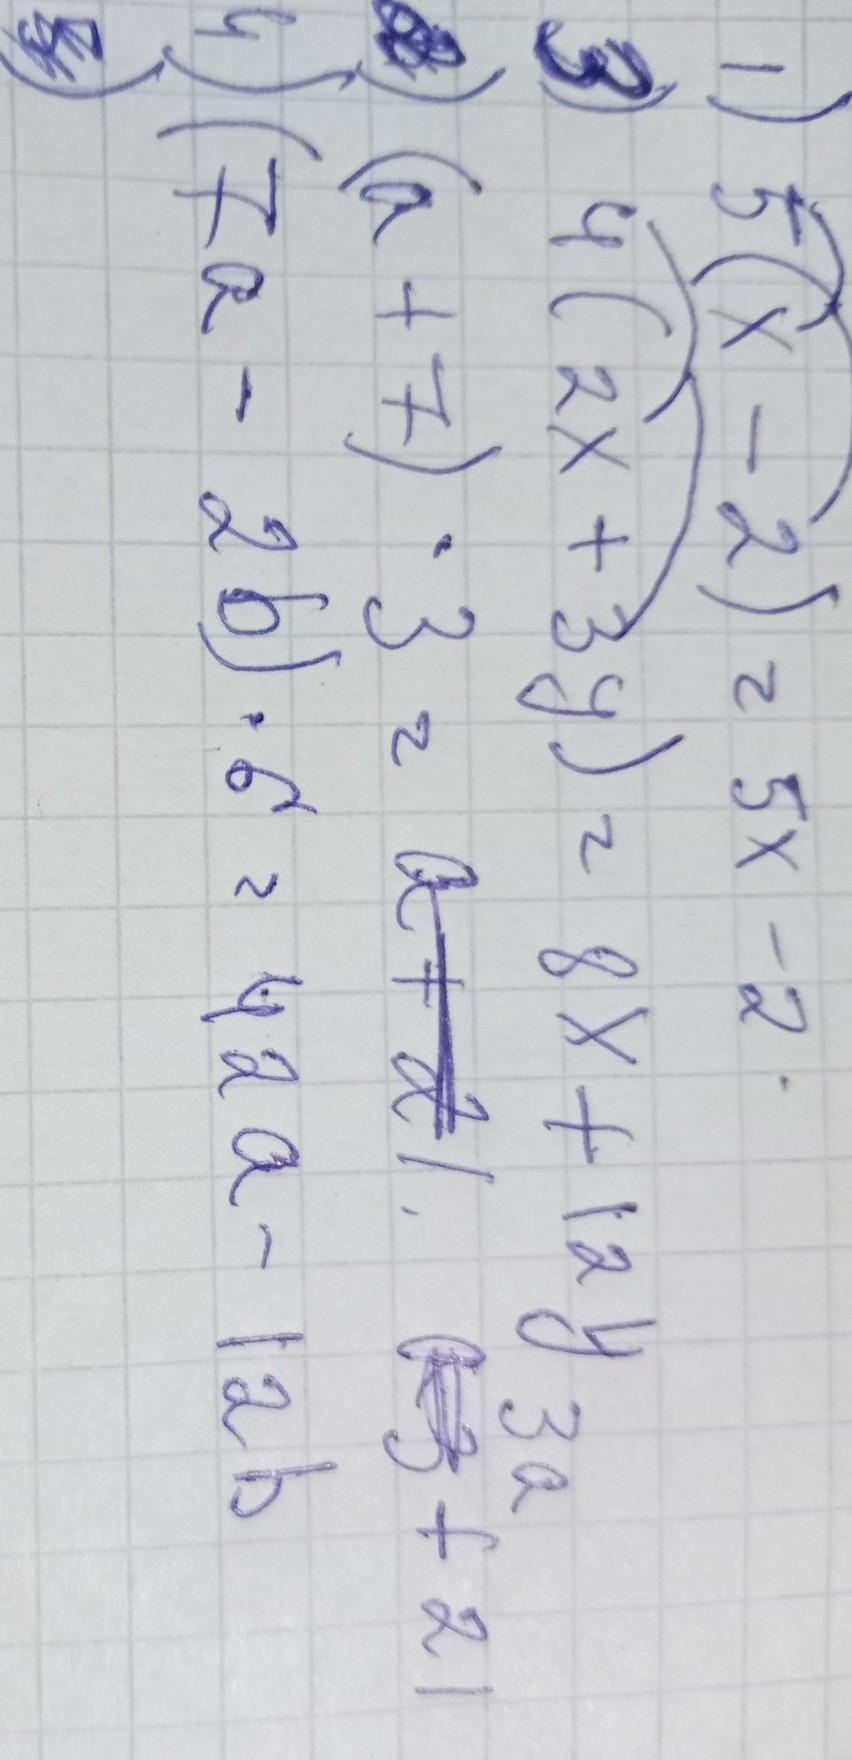 1) 5(x - 2) = 5x - 2.
3) 4(2x + 3y) = 8x + 12y
3a
) (a + 7) · 3 = a + 21. + 21
4) (7a - 2b) · 6 = 42a - 12b
5)